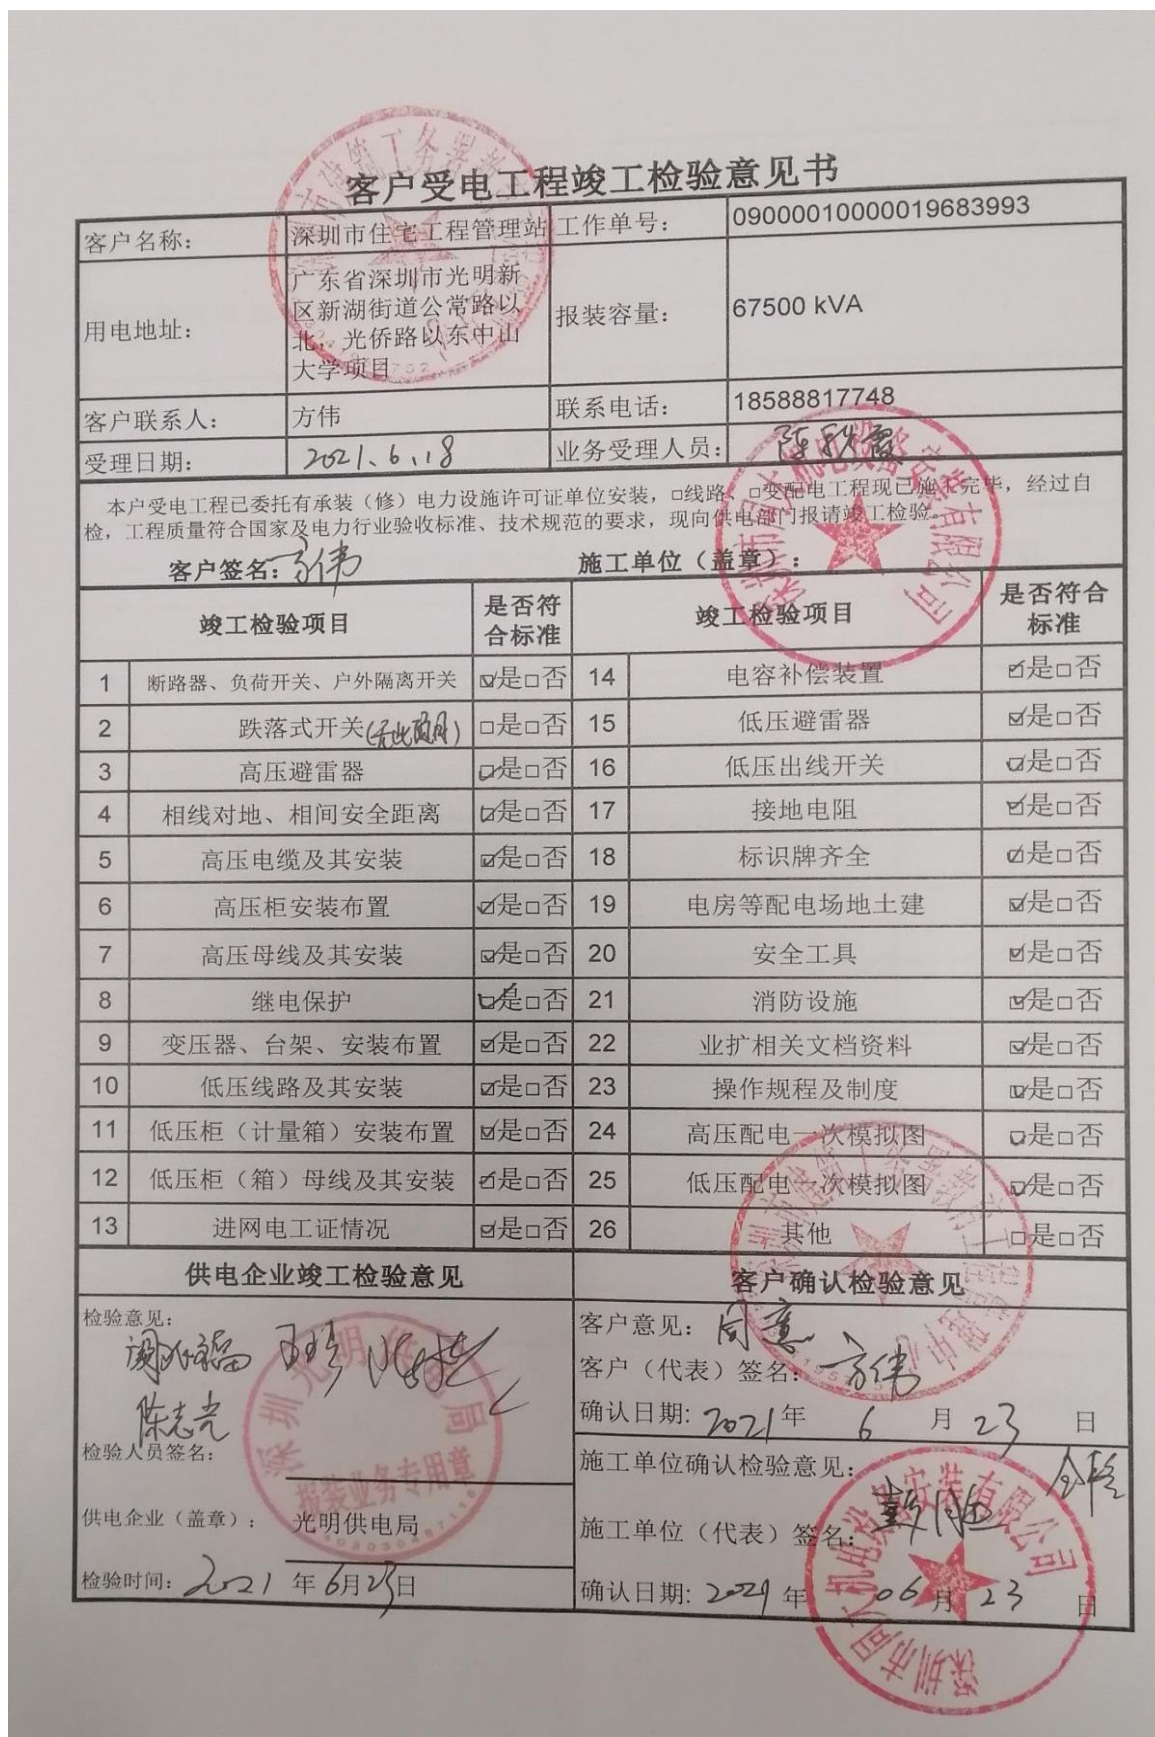 客户受电工程竣工检验意见书
客户名称： 深圳市住宅工程管理站 工作单号： 09000010000019683993
用电地址： 广东省深圳市光明新
区新湖街道公常路以
北，光侨路以东中山
大学项目
报装容量： 67500 kVA
客户联系人： 方伟 联系电话： 18588817748
受理日期： 2021.6.18 业务受理人员：
本户受电工程已委托有承装（修）电力设施许可证单位安装，□线路、□变配电工程现已施工完毕，经过自
检，工程质量符合国家及电力行业验收标准、技术规范的要求，现向供电部门报请竣工检验。
客户签名：方伟 施工单位（盖章）：
竣工检验项目 是否符合标准 竣工检验项目 是否符合标准
1 断路器、负荷开关、户外隔离开关 ☑是□否 14 电容补偿装置 ☑是□否
2 跌落式开关(无此项目) □是□否 15 低压避雷器 ☑是□否
3 高压避雷器 ☑是□否 16 低压出线开关 ☑是□否
4 相线对地、相间安全距离 ☑是□否 17 接地电阻 ☑是□否
5 高压电缆及其安装 ☑是□否 18 标识牌齐全 ☑是□否
6 高压柜安装布置 ☑是□否 19 电房等配电场地土建 ☑是□否
7 高压母线及其安装 ☑是□否 20 安全工具 ☑是□否
8 继电保护 ☑是□否 21 消防设施 ☑是□否
9 变压器、台架、安装布置 ☑是□否 22 业扩相关文档资料 ☑是□否
10 低压线路及其安装 ☑是□否 23 操作规程及制度 ☑是□否
11 低压柜（计量箱）安装布置 ☑是□否 24 高压配电一次模拟图 ☑是□否
12 低压柜（箱）母线及其安装 ☑是□否 25 低压配电一次模拟图 ☑是□否
13 进网电工证情况 ☑是□否 26 其他 □是□否
供电企业竣工检验意见 客户确认检验意见
检验意见：
陈志光
检验人员签名：
供电企业（盖章）： 光明供电局
检验时间：2021年6月23日
深圳光明供电局
报装业务专用章
客户意见：同意
客户（代表）签名：方伟
确认日期：2021年6月23日
施工单位确认检验意见： 合格
施工单位（代表）签名：
确认日期：2021年06月23日